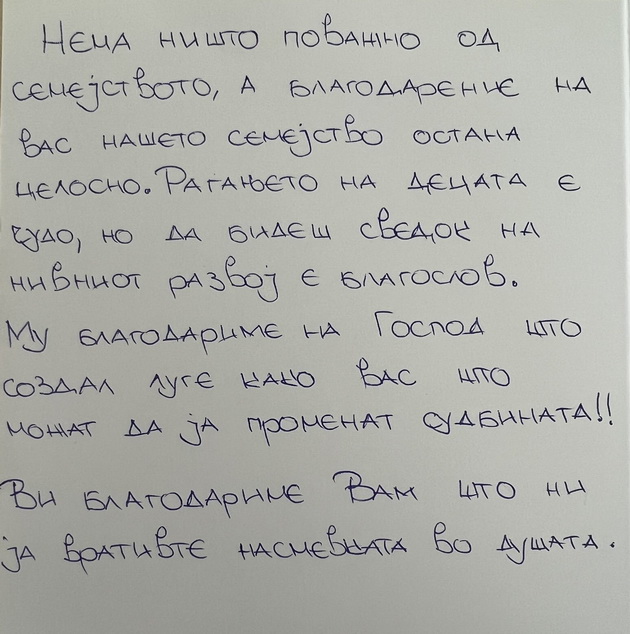 Нема ништо поважно од
семејството, а благодарение на
вас нашето семејство остана
целосно. Рагањето на децата е
чудо, но да бидеш сведок на
нивниот развој е благослов.
Му благодариме на Господ што
создал луге како вас што
можат да ја променат судбината!!
Ви благодариме Вам што ни
ја вративте насмевката во душата.